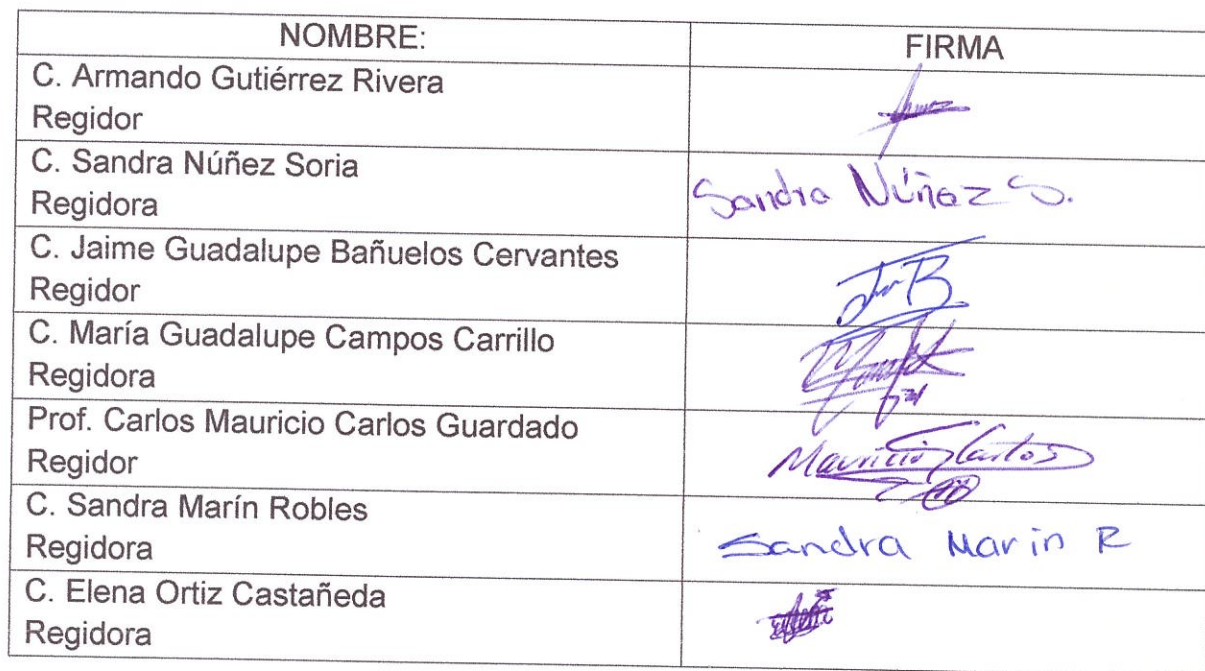 NOMBRE: FIRMA
C. Armando Gutiérrez Rivera
Regidor
C. Sandra Núñez Soria
Regidora
Sandra Núñez S.
C. Jaime Guadalupe Bañuelos Cervantes
Regidor
C. María Guadalupe Campos Carrillo
Regidora
Prof. Carlos Mauricio Carlos Guardado
Regidor
Mauricio Carlos
C. Sandra Marín Robles
Regidora
Sandra Marin R
C. Elena Ortiz Castañeda
Regidora